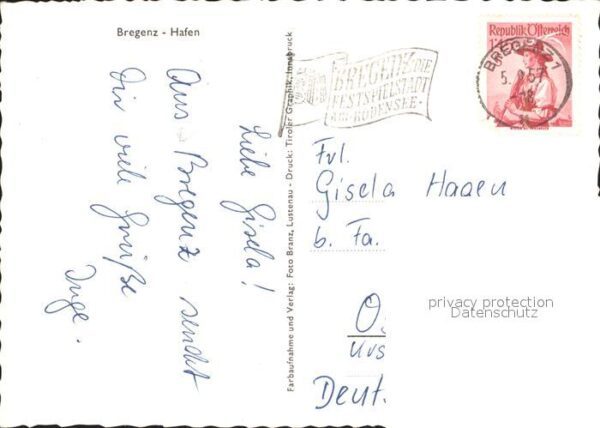 Bregenz - Hafen
Liebe Gisela!
Aus Bregenz sendet
Dir viele Grüße
Inge.
Farbaufnahme und Verlag: Foto Branz, Lustenau - Druck: Tiroler Graphik, Innsbruck
BREGENZ DIE
FESTSPIELSTADT
AM BODENSEE
Republik Österreich
BREGENZ 1
Frl.
Gisela Haaen
b. Fa.
privacy protection
Datenschutz
O.
Deut.